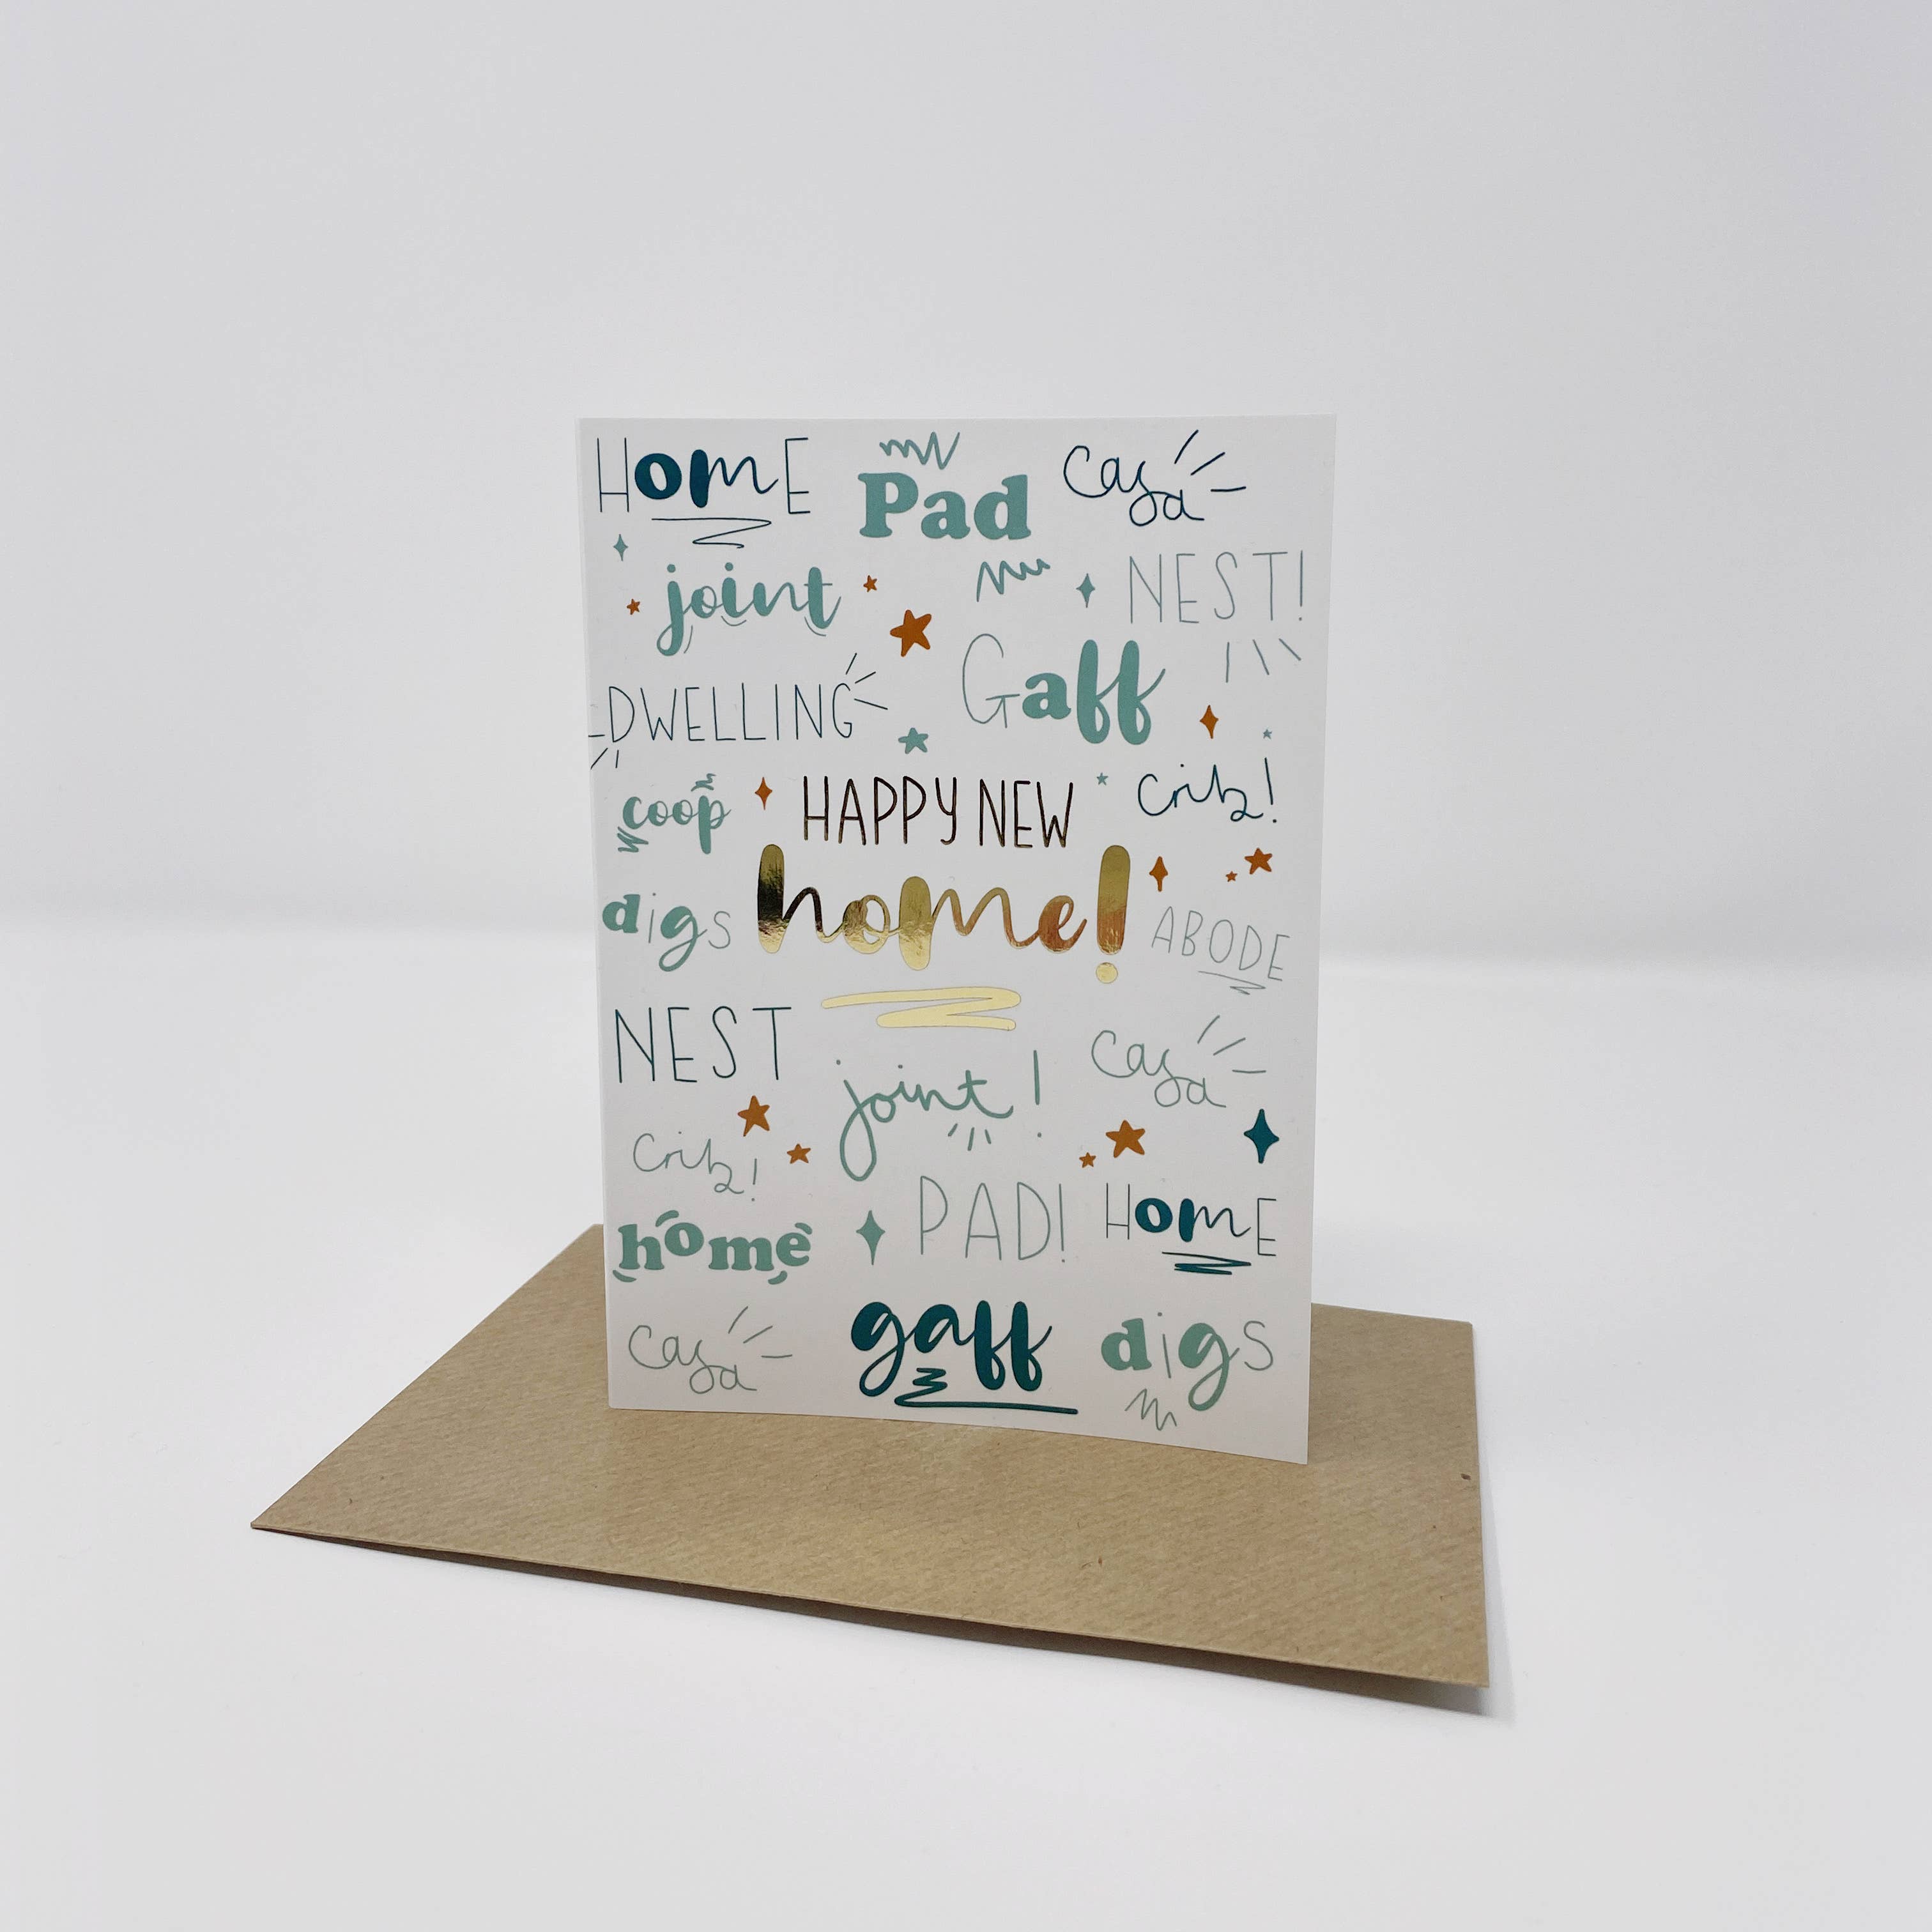 HomE Pad casa
joint NEST!
DWELLING Gaff
coop HAPPY NEW crib!
digs home! ABODE
NEST joint! casa
crib! PAD! HomE
home
casa gaff digs